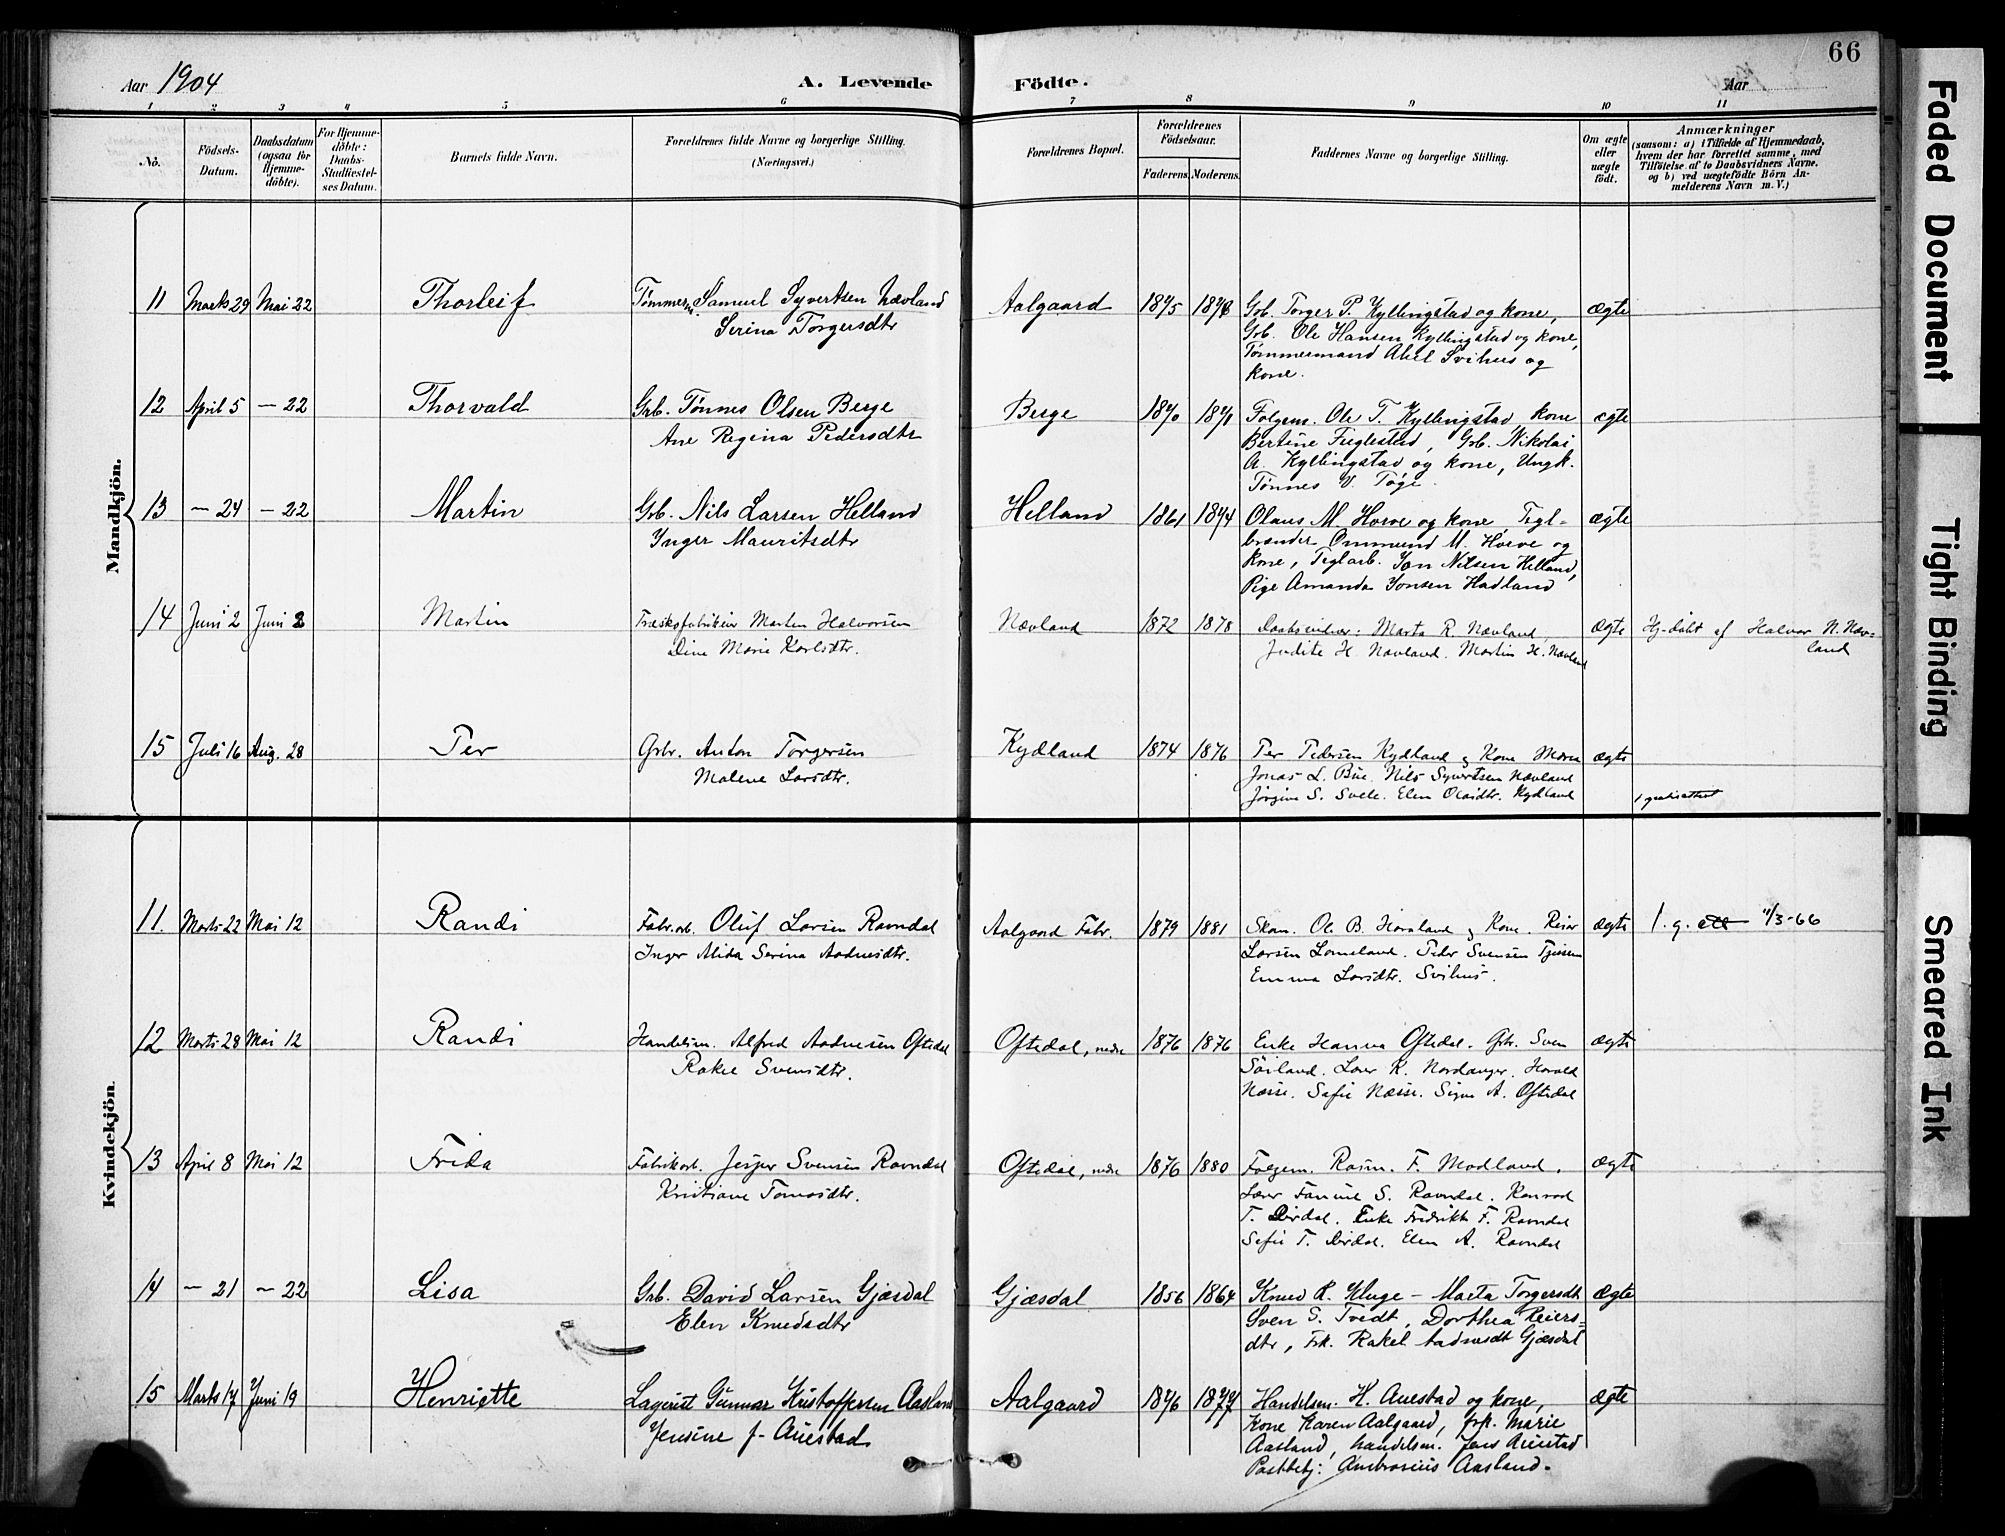 66
Aar 1904
A. Levende
Födte.
Aar
1 2 3 4 5 6 7 8 9 10 11
No.
Födsels-Datum.
Daabsdatum (ogsaa for Hjemme-döbte).
For Hjemme-döbte: Daabs-Stadfæstel-ses Datum.
Barnets fulde Navn.
Forældrenes fulde Navne og borgerlige Stilling. (Næringsvei.)
Forældrenes Bopæl.
Forældrenes Födselsaar.
Faderens. Moderens.
Faddernes Navne og borgerlige Stilling.
Om ægte eller uægte födt.
Anmærkninger
(saasom: a) i Tilfælde af Hjemmedaab,
hvem der har forrettet samme, med
Tilföielse af to Daabsvidners Navne.
og b) ved uægtefödte Börn An-
melderens Navn m. V.)
Mandkjön.
11 Marts 29 Mai 22 Thorleif Tømmerm. Samuel Syvertsen Nævland Aalgaard 1875 1878 Grb. Torger P. Kyllingstad og kone, ægte
Serina Torgersdtr Grb. Ole Hansen Kyllingstad og kone,
Tømmermand Abel Svihus og
kone.
12 April 5 - 22 Thorvald Grb. Tönnes Olsen Berge Berge 1870 1871 Folgem. Ole T. Kyllingstad kone ægte
Ane Regina Pedersdtr Bertine Fuglestad, Grb. Nikolai
A. Kyllingstad og kone, Ungk.
Tönnes V. Toge.
13 - 24 - 22 Martin Grb. Nils Larsen Helland Helland 1861 1874 Olaus M Horve og kone, Tegl- ægte
Inger Mauritsdtr brænder Ommund M. Horve og
kone, Teglarb. Jon Nilsen Helland,
Pige Amanda Jonsen Hadland
14 Juni 2 Juni 2 Martin Træskofabrikør Martin Halvorsen Nævland 1872 1878 Daabsvidner: Marta R. Nævland, ægte Hj.döbt af Halvor N. Næv-
Dine Marie Karlsdtr. Judite H. Nævland. Martin H. Nævland land
15 Juli 16 Aug. 28 Per Grbr. Anton Torgersen Kydland 1874 1876 Per Pedersen Kydland & Kone ægte
Malene Larsdtr. Jonas L. Bue. Nils Syvertsen Nævland
Jörgine S. Svele. Elen Olasdtr. Kydland 1 gratisattest
Kvindekjön.
11. Marts 22 Mai 12 Randi Fabr.arb. Oluf Larsen Ravndal Aalgaard Fabr. 1879 1881 Skom. Ole B. Havsland & Kone. Reier ægte 1. g. att 11/3-66
Inger Alida Serina Aadnesdtr. Larsen Lomeland. Peder Svensen
Emma Larsdtr. Svihus.
12 Marts 28 Mai 12 Randi Handelsm. Alfred Aadnesen Oftedal Oftedal, nedre 1876 1876 Enke Hanna Oftedal. Grbr. Sven ægte
Rakel Svensdtr. Söiland. Lærer K. Nordanger. Harald
Næsse. Sofie Næsse. Signe A. Oftedal
13 April 8 Mai 12 Frida Fabrikarb. Jesper Svensen Ravndal Oftedal, nedre 1876 1880 Folgem. Rasm. F. Madland. ægte
Kristiane Tomasdtr. Lærer S. Ravndal. Konrad
T. Dirdal. Enke Fredrikke F. Ravndal
Sofie T. Dirdal. Elen A. Ravndal
14 - 21 - 22 Lisa Grb. David Larsen Gjæsdal Gjæsdal 1856 1864 Knud R. Kluge - Marta Torgersdt ægte
Elen Knudsdtr Sven S. Tvedt, Dorthea Reiers=
dtr, Frk. Rakel Aadnesdt Gjæsdal
15 Marts 17 Juni 19 Henriette Lagerist Gunnar Kristoffersen Aasland Aalgaard 1876 1877 Handelsm. H. Auestad og kone, ægte
Jensine f. Auestad kone Karen Aalgaard, frk. Marie
Aasland, handelsm. Jens Auestad
Postbetj. Ambrosius Aasland.
Faded Document
Tight Binding
Smeared Ink